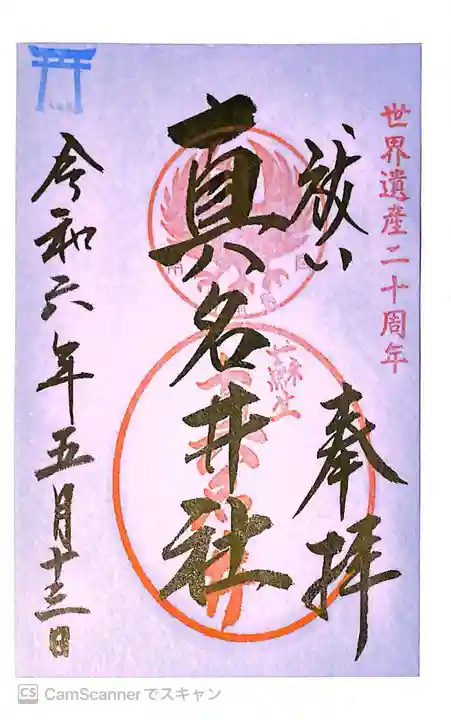 世界遺産二十周年
祓い
奉拝
真名井社
蘇生
令和六年五月十三日
CS CamScannerでスキャン